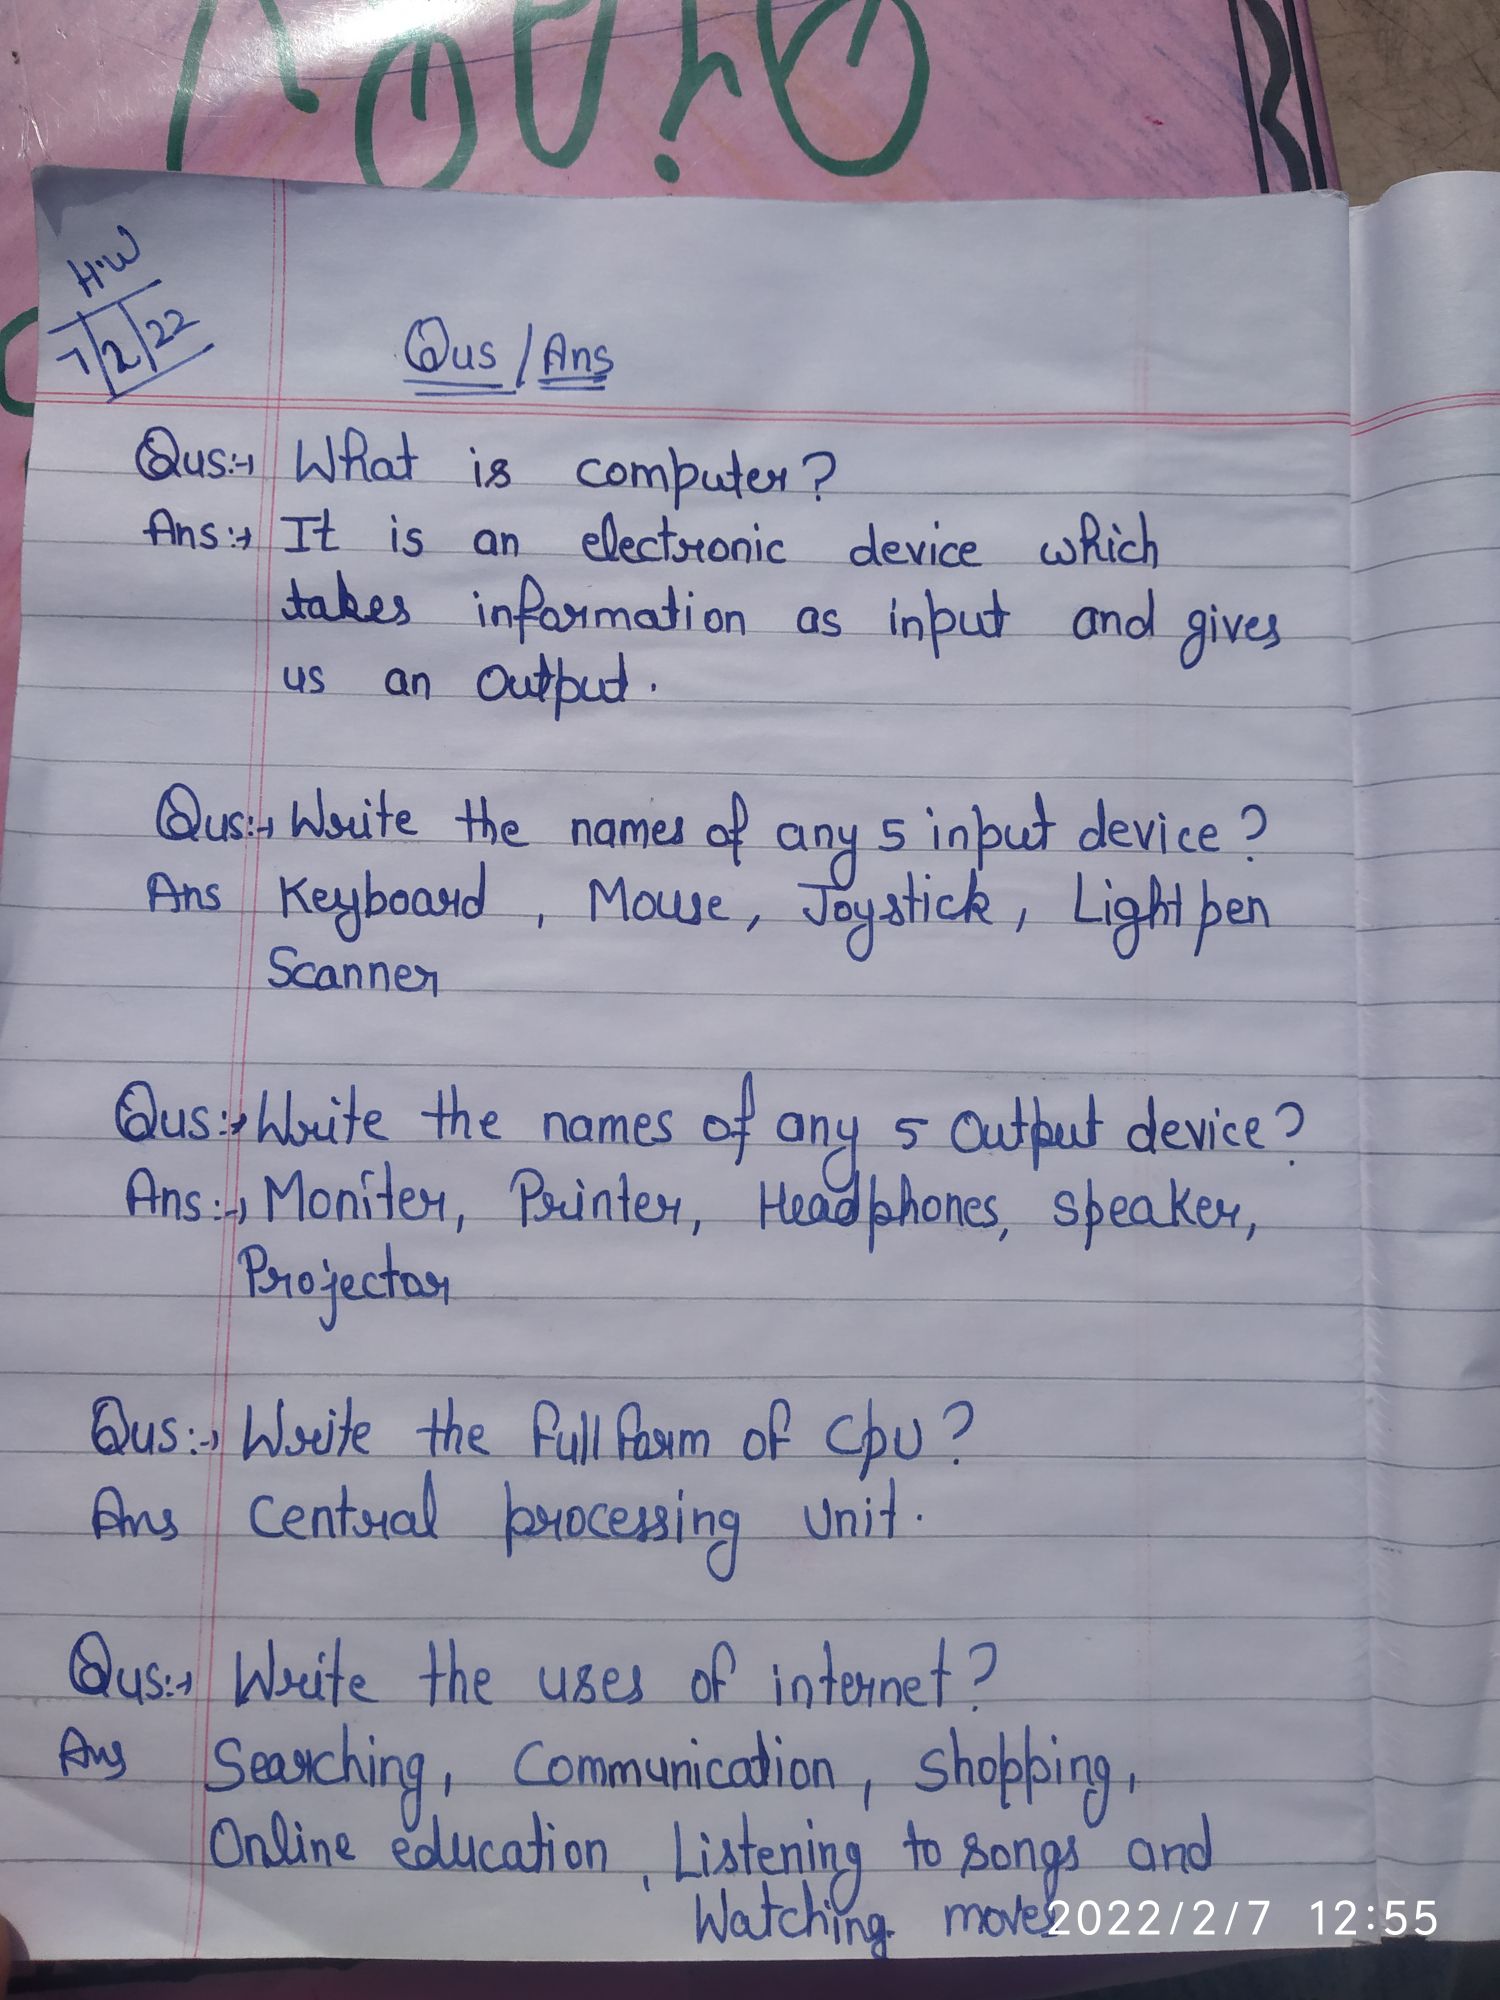 H.W
7/2/22
Qus/Ans
Qus:→ What is computer?
Ans:→ It is an electronic device which
takes information as input and gives
us an output.
Qus:→ Write the names of any 5 input device?
Ans Keyboard, Mouse, Joystick, Light pen
Scanner
Qus:→ Write the names of any 5 output device?
Ans:→ Moniter, Printer, Headphones, speaker,
Projector
Qus:→ Write the full form of CPU?
Ans Central processing unit.
Qus:→ Write the uses of internet?
Ans Searching, Communication, shopping,
Online education, Listening to songs and
Watching moves
2022/2/7 12:55